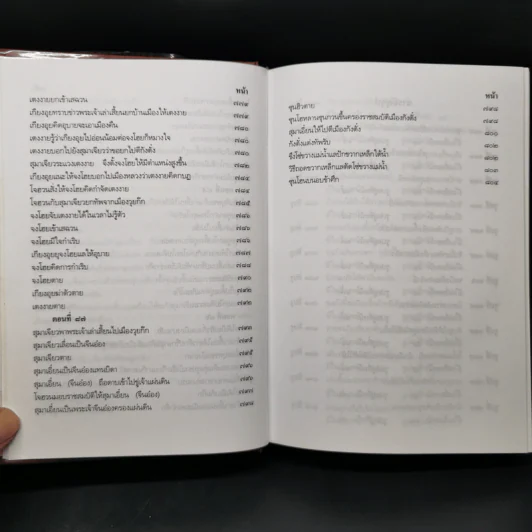 หน้า
เตงงายยกเข้าเสฉวน ๗๗๙
เกียงอุยทราบข่าวพระเจ้าเล่าเสี้ยนยกบ้านเมืองให้เตงงาย ๗๗๙
เกียงอุยคิดอุบายจะเอาเมืองคืน ๗๘๐
เตงงายรู้ว่าเกียงอุยไปอ่อนน้อมต่อจงโฮยก็หมางใจ ๗๘๐
เตงงายบอกไปยังสุมาเจียวว่าขอยกไปตีกังตั๋ง
สุมาเจียวระแวงเตงงาย จึงตั้งจงโฮยให้มีตำแหน่งสูงขึ้น
เกียงอุยแนะให้จงโฮยบอกไปเมืองหลวงว่าเตงงายคิดกบฏ
โจฮวนสั่งให้จงโฮยคิดกำจัดเตงงาย
โจฮวนกับสุมาเจียวยกทัพจากเมืองวุยก๊ก ๗๘๕
จงโฮยจับเตงงายได้ในเวลาไม่รู้ตัว ๗๘๖
จงโฮยเข้าเสฉวน ๗๘๖
จงโฮยมีใจกำเริบ ๗๘๖
เกียงอุยยุจงโฮยและให้อุบาย ๗๘๗
จงโฮยคิดการกำเริบ
จงโฮยตาย
เกียงอุยฆ่าตัวตาย ๗๙๒
เตงงายตาย ๗๙๒
ตอนที่ ๘๗
สุมาเจียวพาพระเจ้าเล่าเสี้ยนไปเมืองวุยก๊ก
สุมาเจียวเลื่อนเป็นจีนอ๋อง ๗๙๕
สุมาเจียวตาย ๗๙๕
สุมาเอี๋ยนเป็นจีนอ๋องแทนบิดา ๗๙๖
สุมาเอี๋ยน (จีนอ๋อง) ถือดาบเข้าไปขู่เจ้าแผ่นดิน ๗๙๖
โจฮวนมอบราชสมบัติให้สุมาเอี๋ยน (จีนอ๋อง) ๗๙๗
สุมาเอี๋ยนเป็นพระเจ้าจีนอ๋องครองแผ่นดิน ๗๙๘
หน้า
ซุนฮิวตาย ๗๙๘
ซุนโฮหลานซุนกวนขึ้นครองราชสมบัติเมืองกังตั๋ง ๗๙๘
สุมาเอี๋ยนให้ไปตีเมืองกังตั๋ง ๘๐๑
กังตั๋งแต่งทัพรับ
ขึงโซ่ขวางแม่น้ำและปักขวากเหล็กใต้น้ำ
วิธีถอดขวากเหล็กและตัดโซ่ขวางแม่น้ำ
ซุนโฮนบนอบข้าศึก ๘๐๔